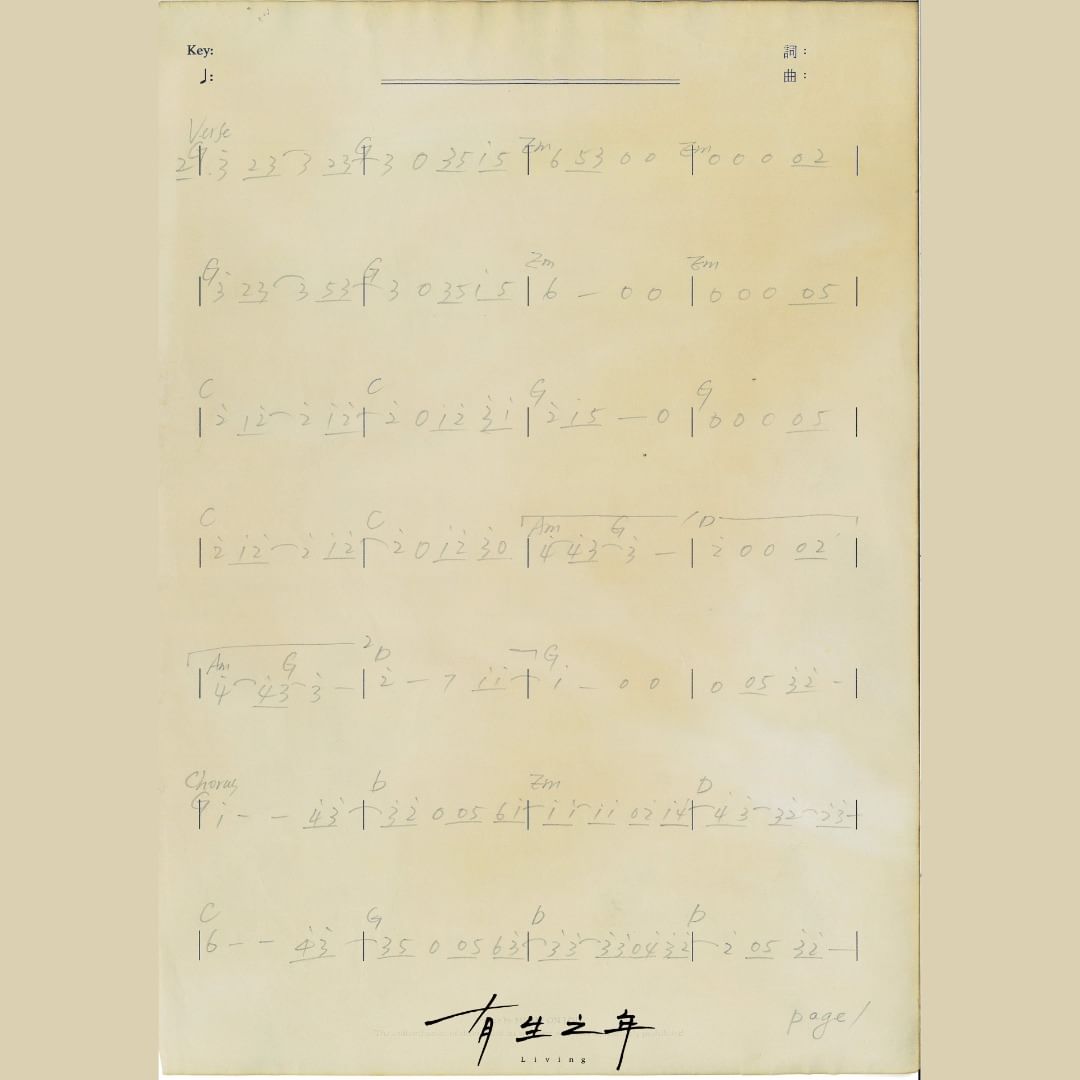 Key: 詞：
♩: 曲：
Verse
G G Em Em
2 | 3 23 3 23 | 3 0 35 i5 | 6 53 0 0 | 0 0 0 02 |
G G Em Em
| 3 23 3 53 | 3 0 35 i5 | 6 – 0 0 | 0 0 0 05 |
C C G G
| 2 12 2 12 | 2 0 12 31 | 2 15 – 0 | 0 0 0 05 |
C C Am G D
| 2 12 2 12 | 2 0 12 30 | 4 43 3 – | 2 0 0 02 |
Am G 2 D G
| 4 43 3 – | 2 – 7 11 | 1 – 0 0 | 0 05 32 – |
Chorus
G D Em D
| 1 – – 43 | 32 0 05 61 | 11 11 02 14 | 4 3 32 23 |
C G D D
| 6 – – 43 | 35 0 05 63 | 33 33 04 32 | 2 05 32 – |
有生之年
Living
page 1